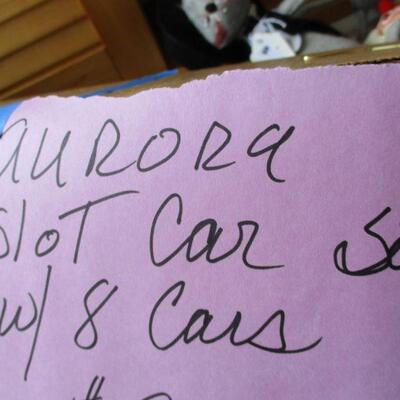 AURORA
Slot Car
w/ 8 Cars
#